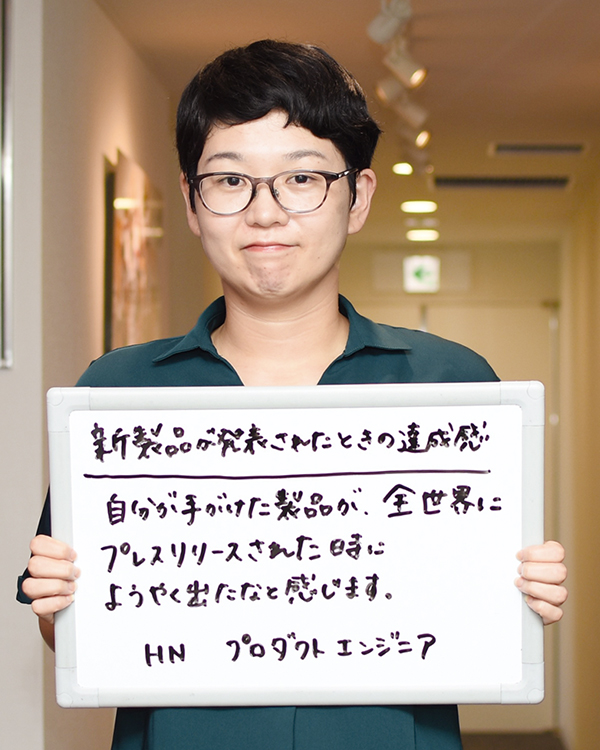 新製品が発表されたときの達成感
自分が手がけた製品が、全世界に
プレスリリースされた時に
ようやく出たなと感じます。
HN プロダクトエンジニア